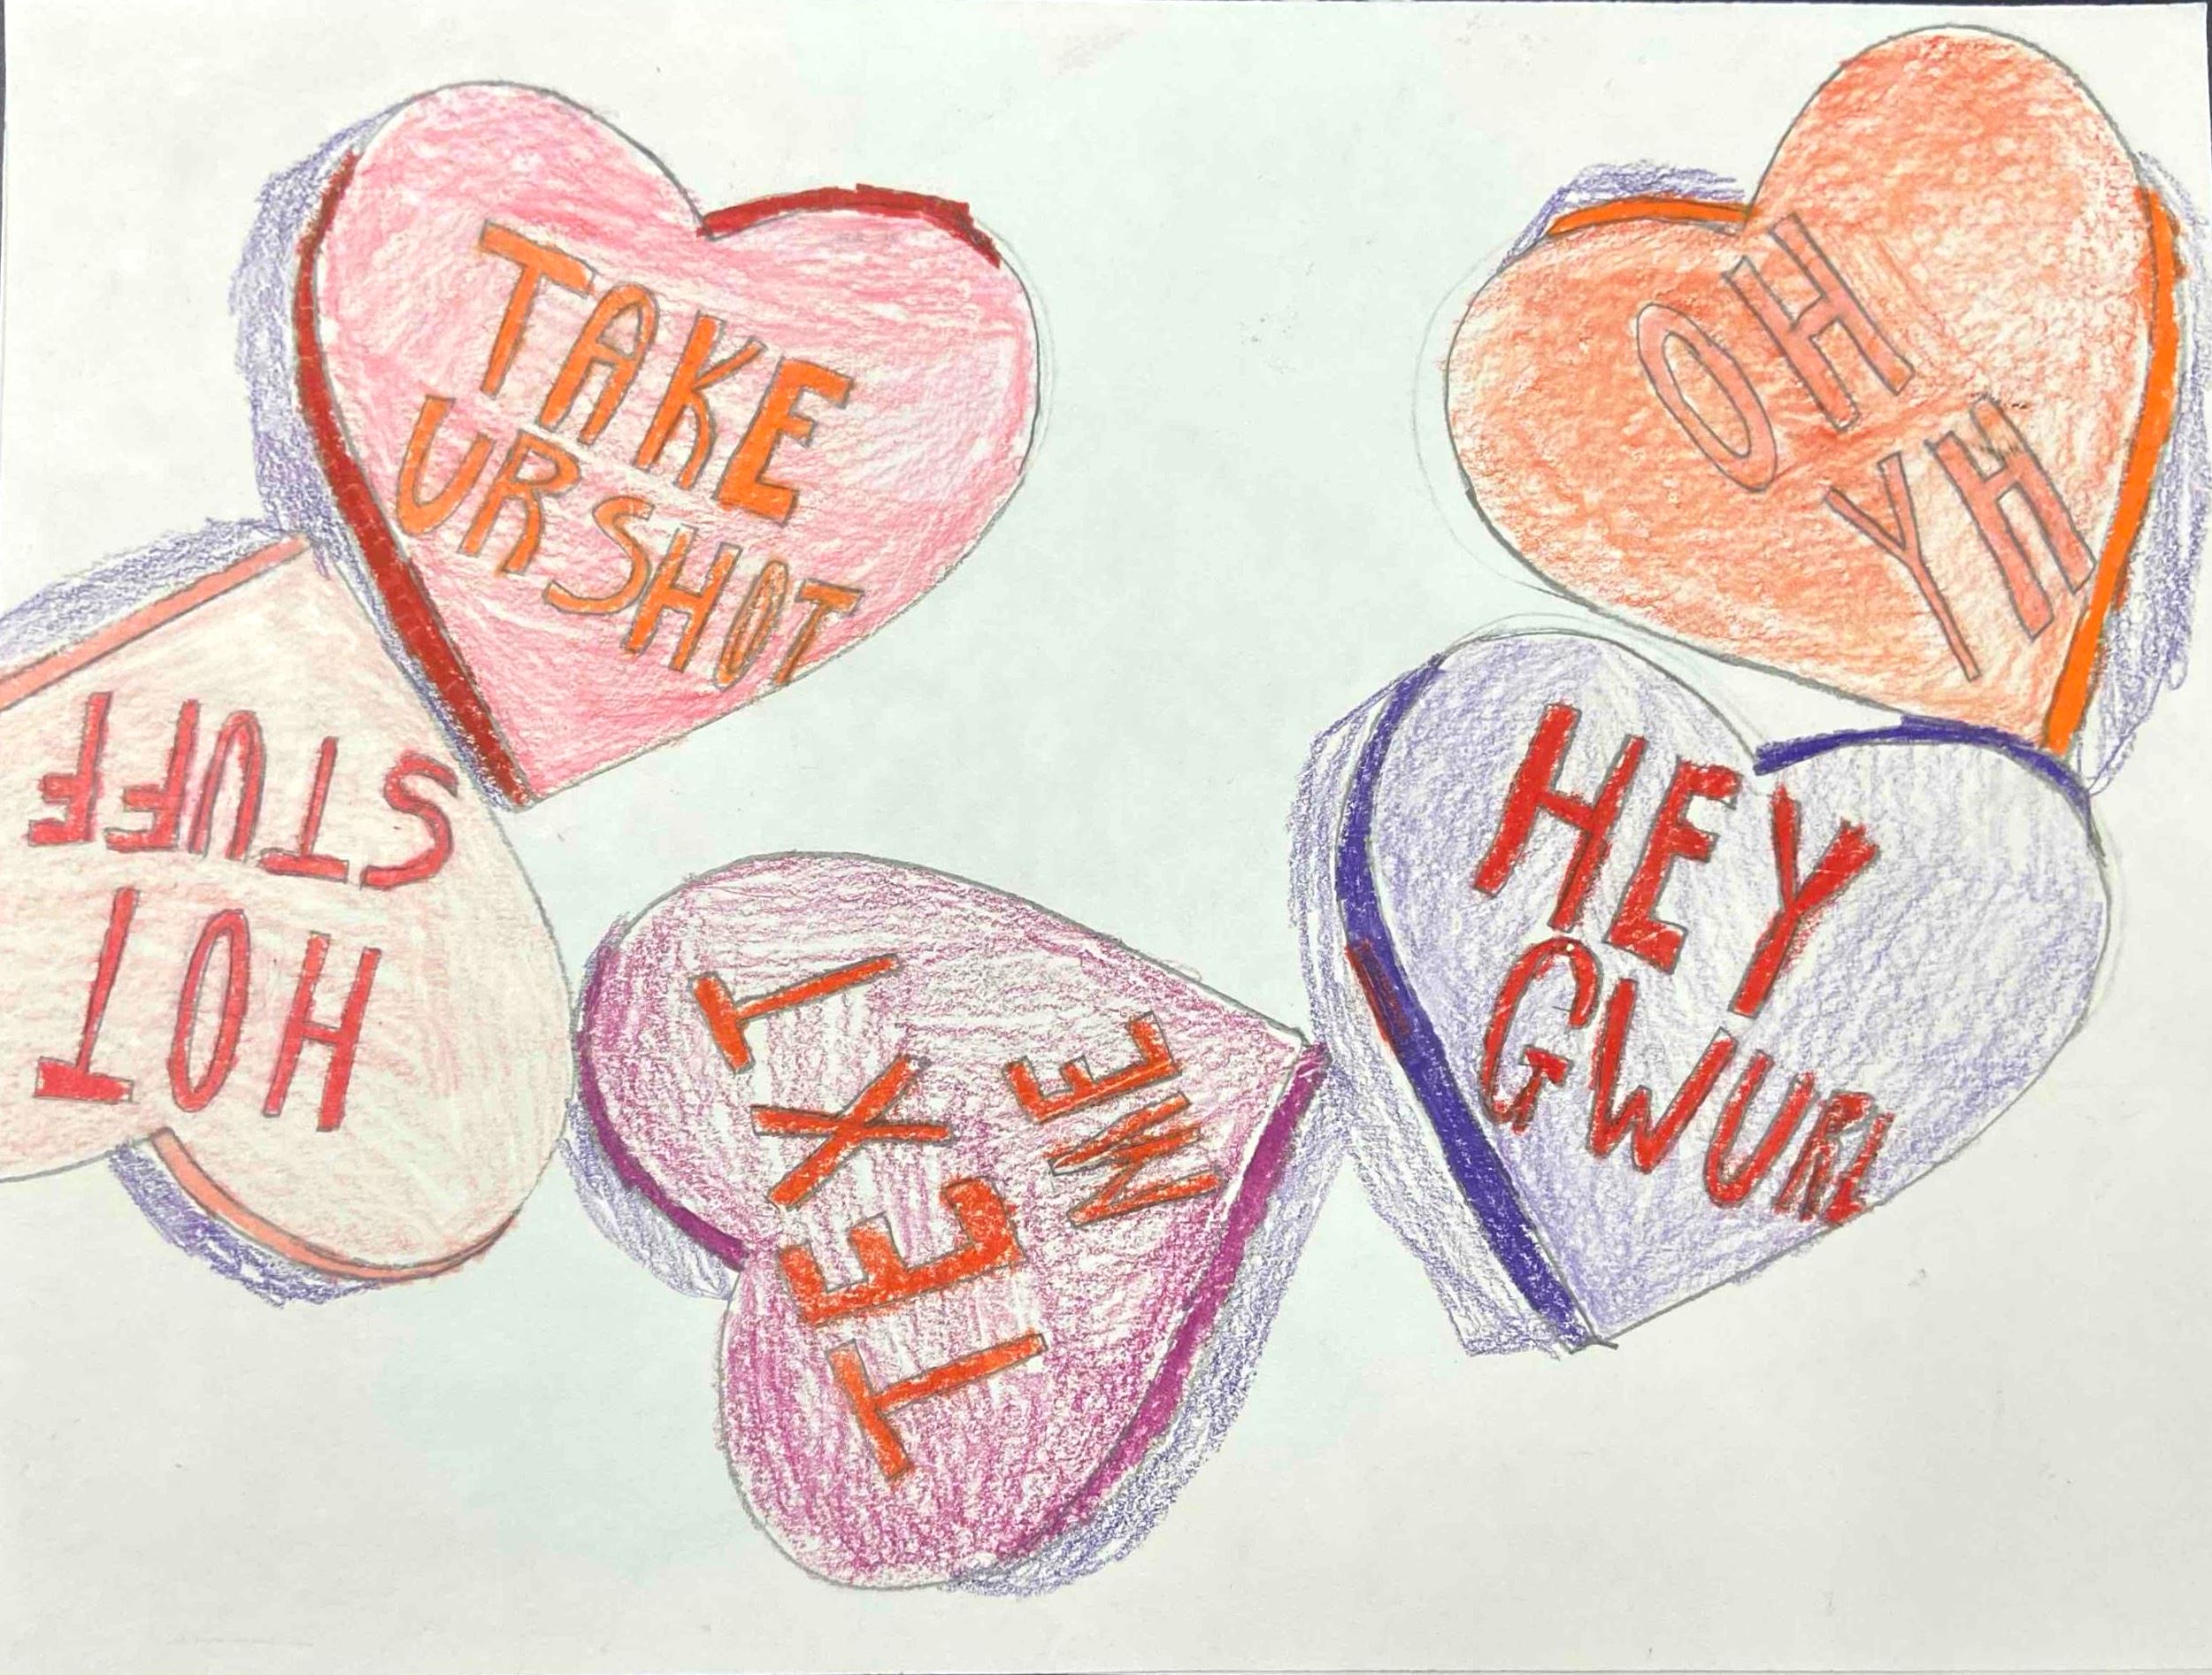 TAKE
URSHOT
OH
YH
HOT
STUFF
TEXT
ME
HEY
GWURL